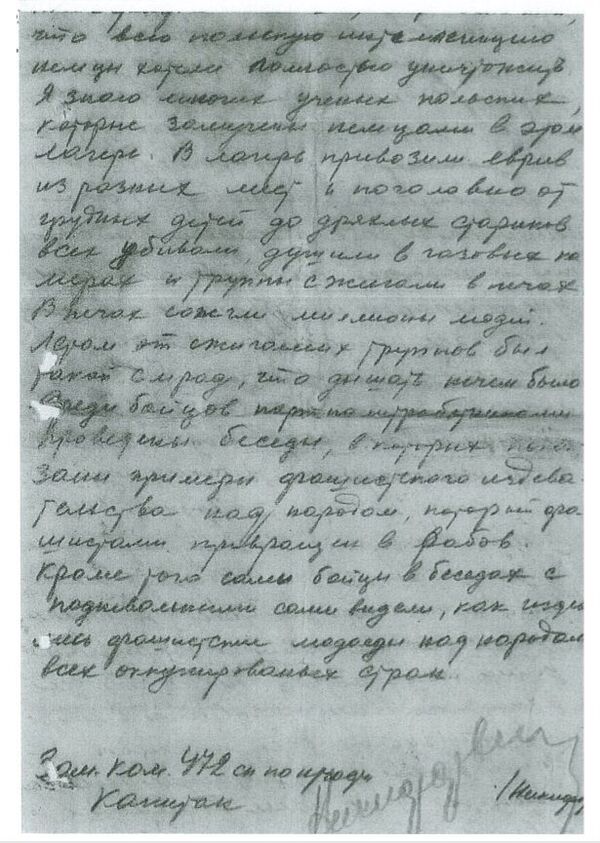 что всю польскую интеллигенцию
немцы хотели полностью уничтожить.
Я знаю многих ученых польских,
которые замучены немцами в этом
лагере. В лагерь привозили евреев
из разных мест и поголовно от
грудных детей до дряхлых стариков
всех убивали, душили в газовых ка
мерах и трупы сжигали в печах
В печах сожгли миллионы людей.
Летом от сжигаемых трупов был
такой смрад, что дышать нечем было
Среди бойцов партполитработниками
проведены беседы, в которых пока
заны примеры фашистского издева
тельства над народом, который фа
шистами превращен в рабов.
Кроме того сами бойцы в беседах с
сами видели, как изде
фашистские людоеды над народом
всех оккупированых стран.
Зам. Ком. 472 сп по
Капитан